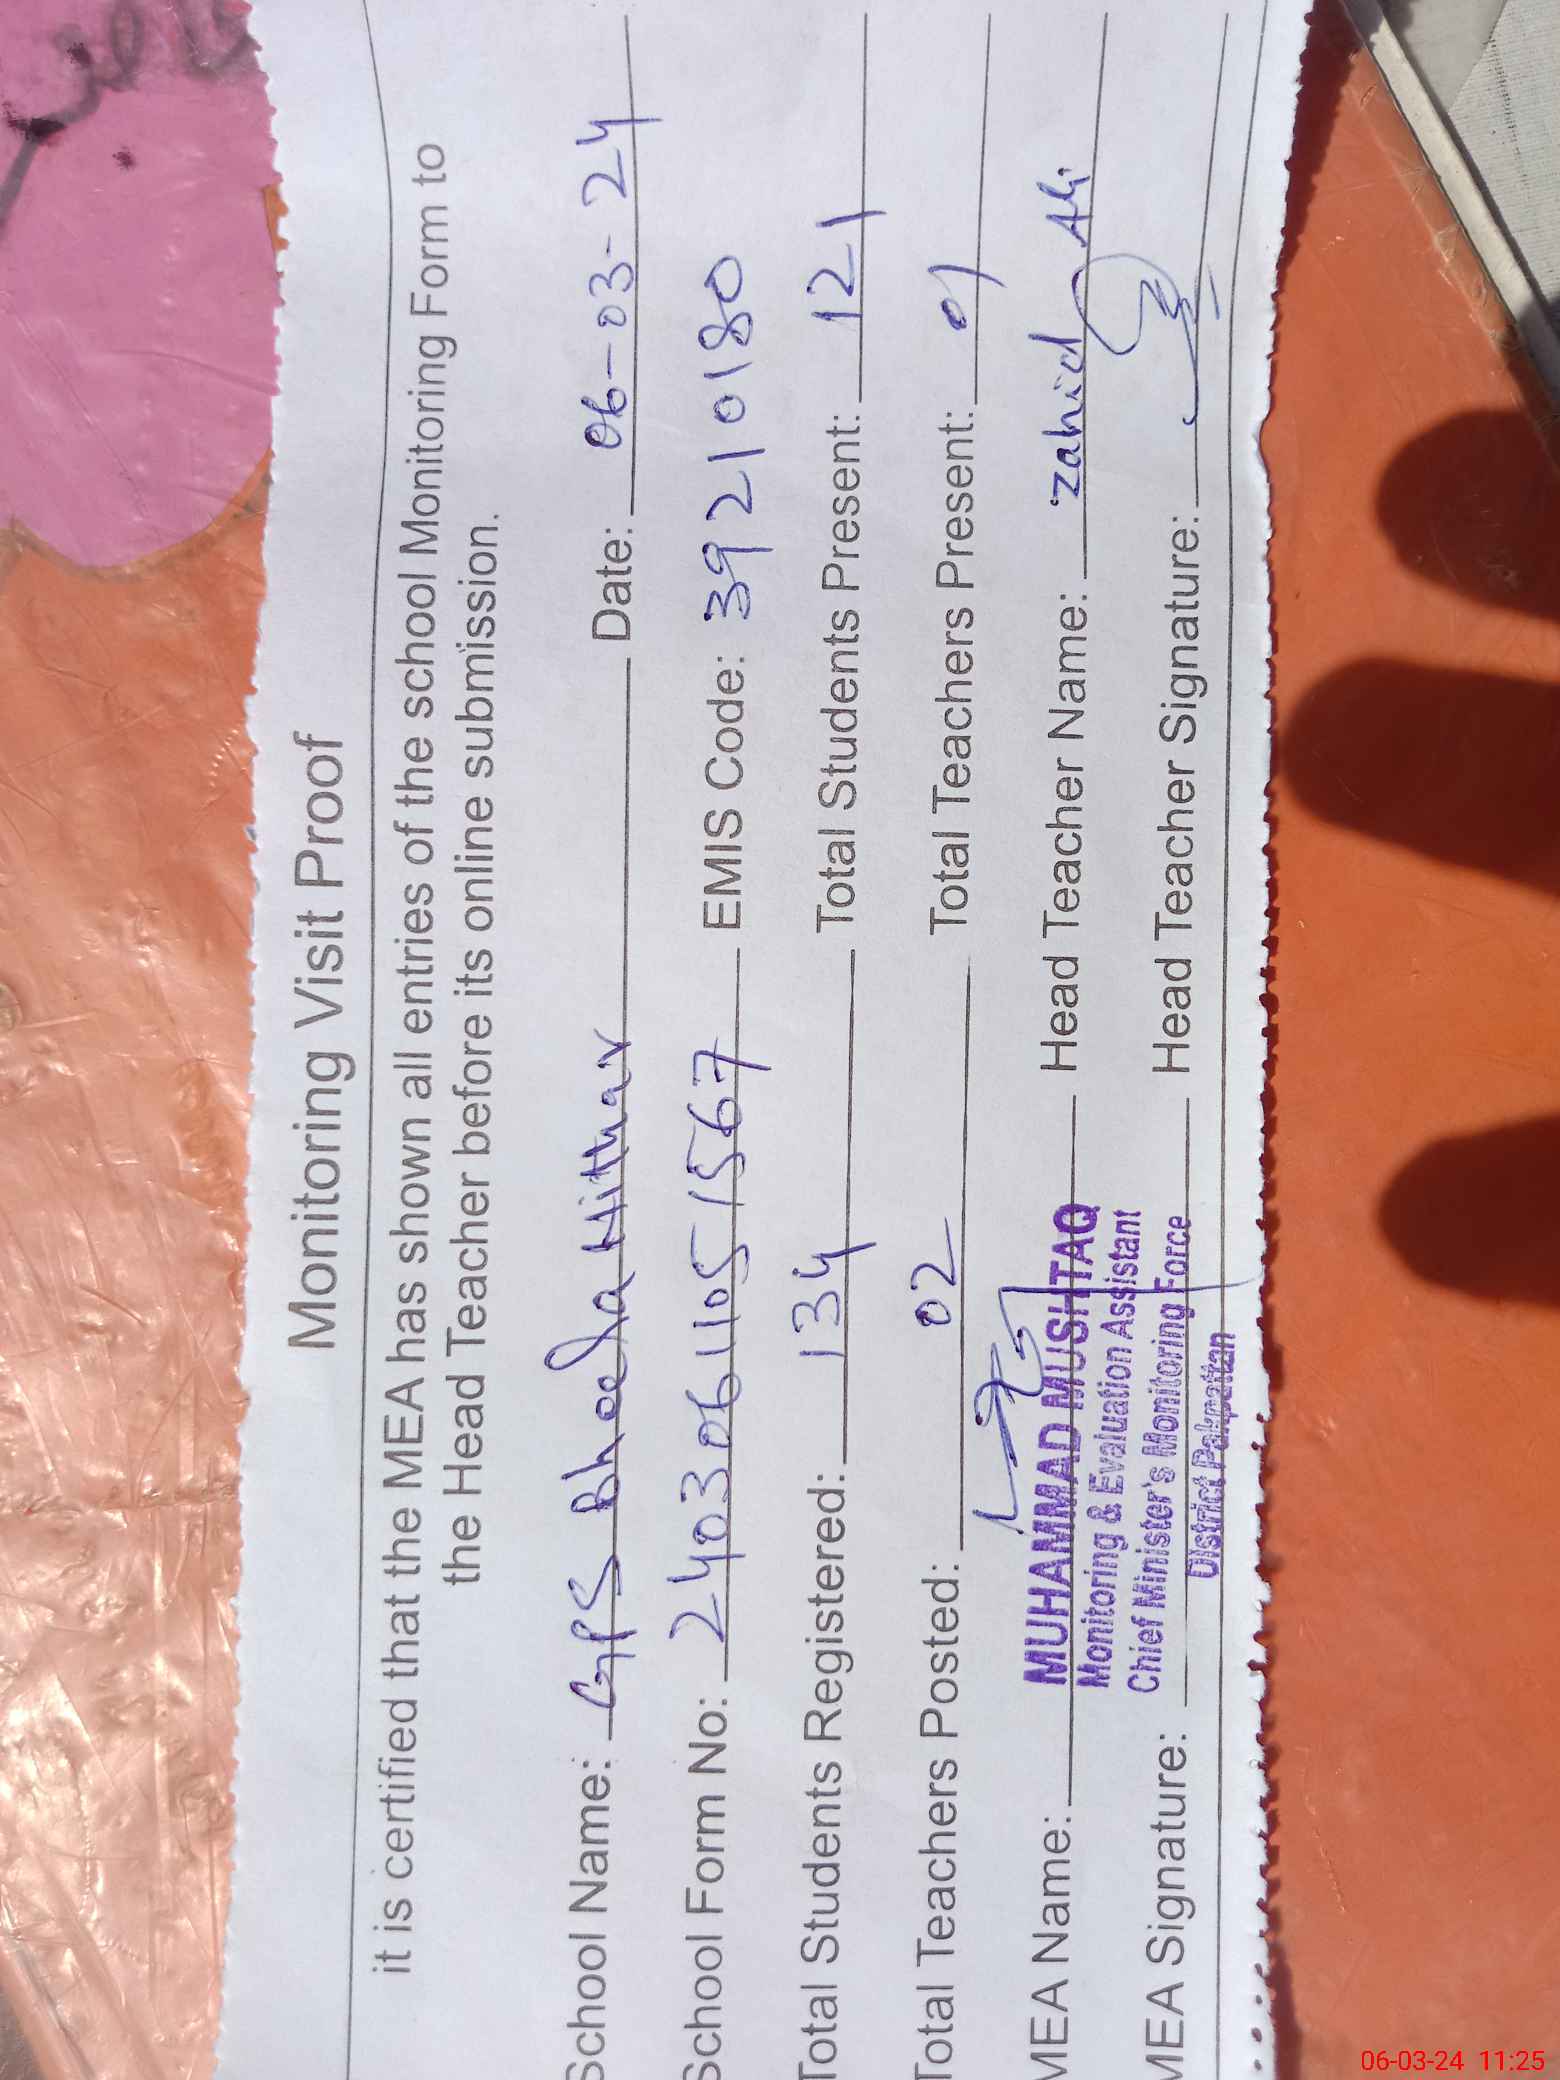 Monitoring Visit Proof
it is certified that the MEA has shown all entries of the school Monitoring Form to
the Head Teacher before its online submission.
School Name: GPS Bheela Hithar Date: 06-03-24
School Form No: 240306110S1567 EMIS Code: 39210180
Total Students Registered: 134 Total Students Present: 121
Total Teachers Posted: 02 Total Teachers Present: 01
MEA Name: MUHAMMAD MUSHTAQ Head Teacher Name: Zahid Ali
Monitoring & Evaluation Assistant
Chief Minister's Monitoring Force
MEA Signature: Head Teacher Signature:
District Pakpattan
06-03-24 11:25